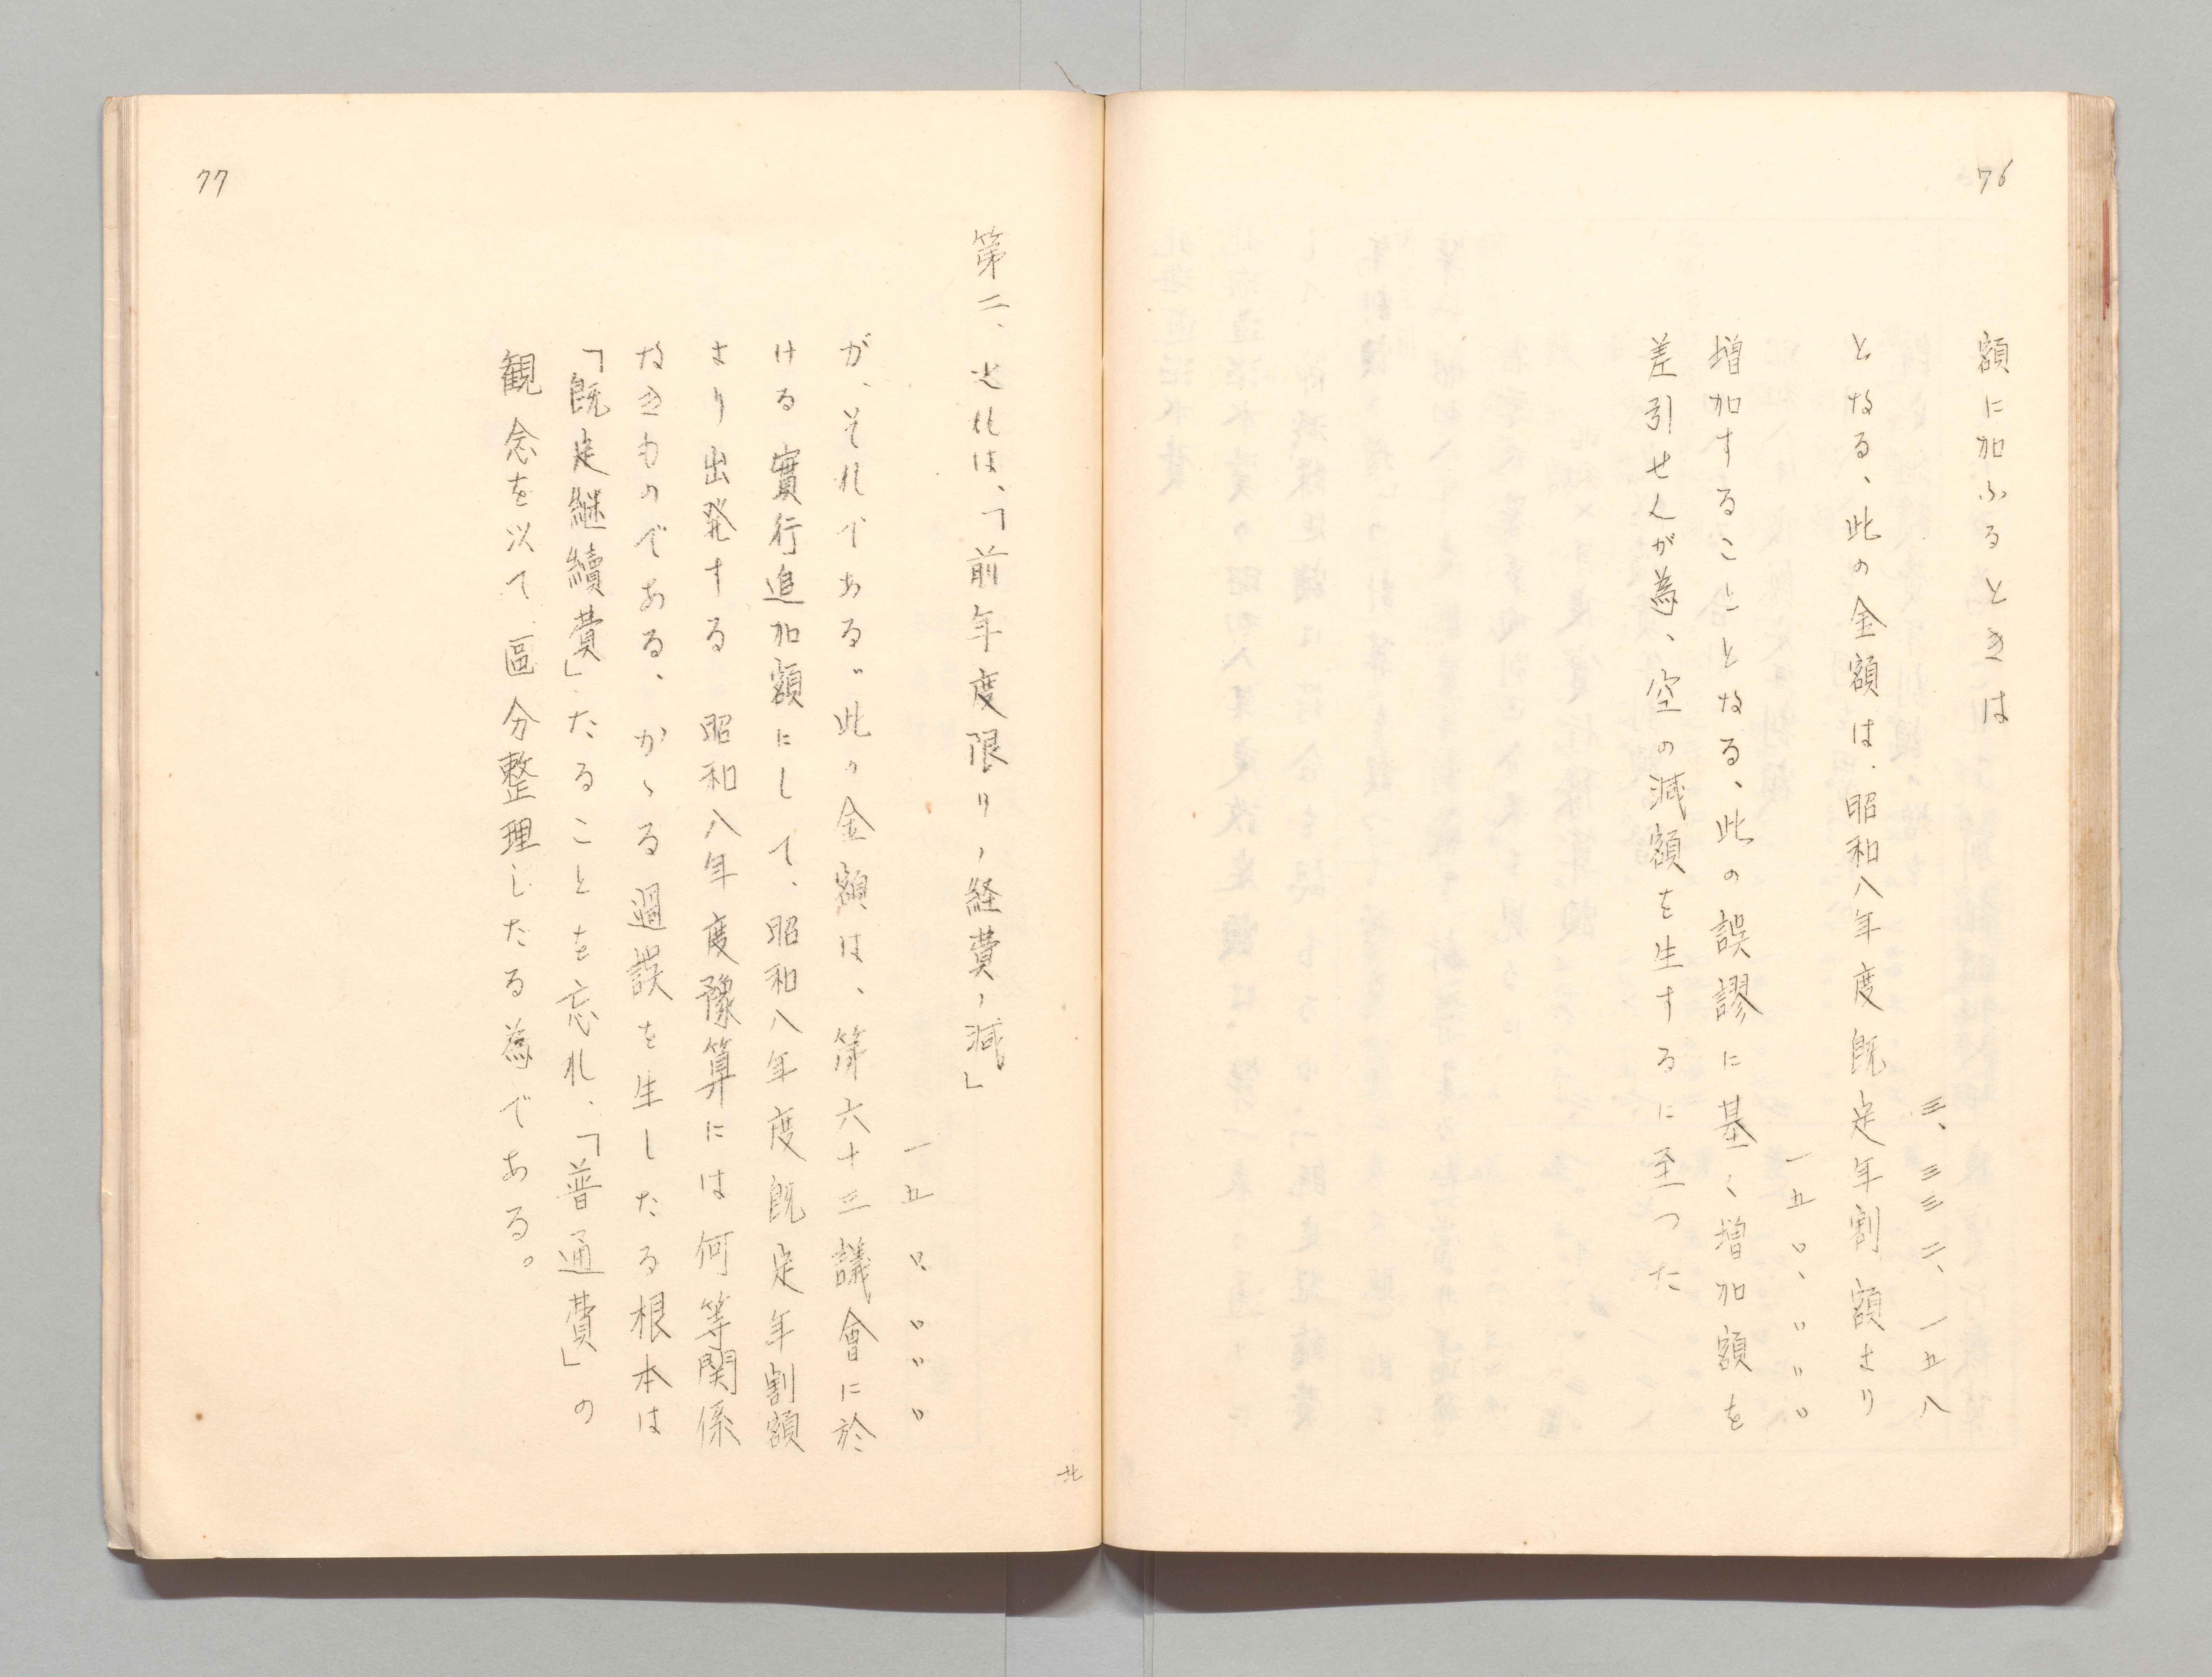 76
額に加ふるときは
三、三三二、一五八
となる、此の金額は、昭和八年度既定年割額より
一五〇、〇〇〇
増加することとなる、此の誤謬に基く増加額を
差引せんが為、空の減額を生するに至つた
77
第二、之れは、「前年度限リノ経費ノ減」
一五〇、〇〇〇
が、それである。此の金額は、第六十三議會に於
ける實行追加額にして、昭和八年度既定年割額
より出発する昭和八年度豫算には何等関係
なきものである、かゝる過誤を生したる根本は
「既定継續費」たることを忘れ、「普通費」の
観念を以て區分整理したる為である。
北